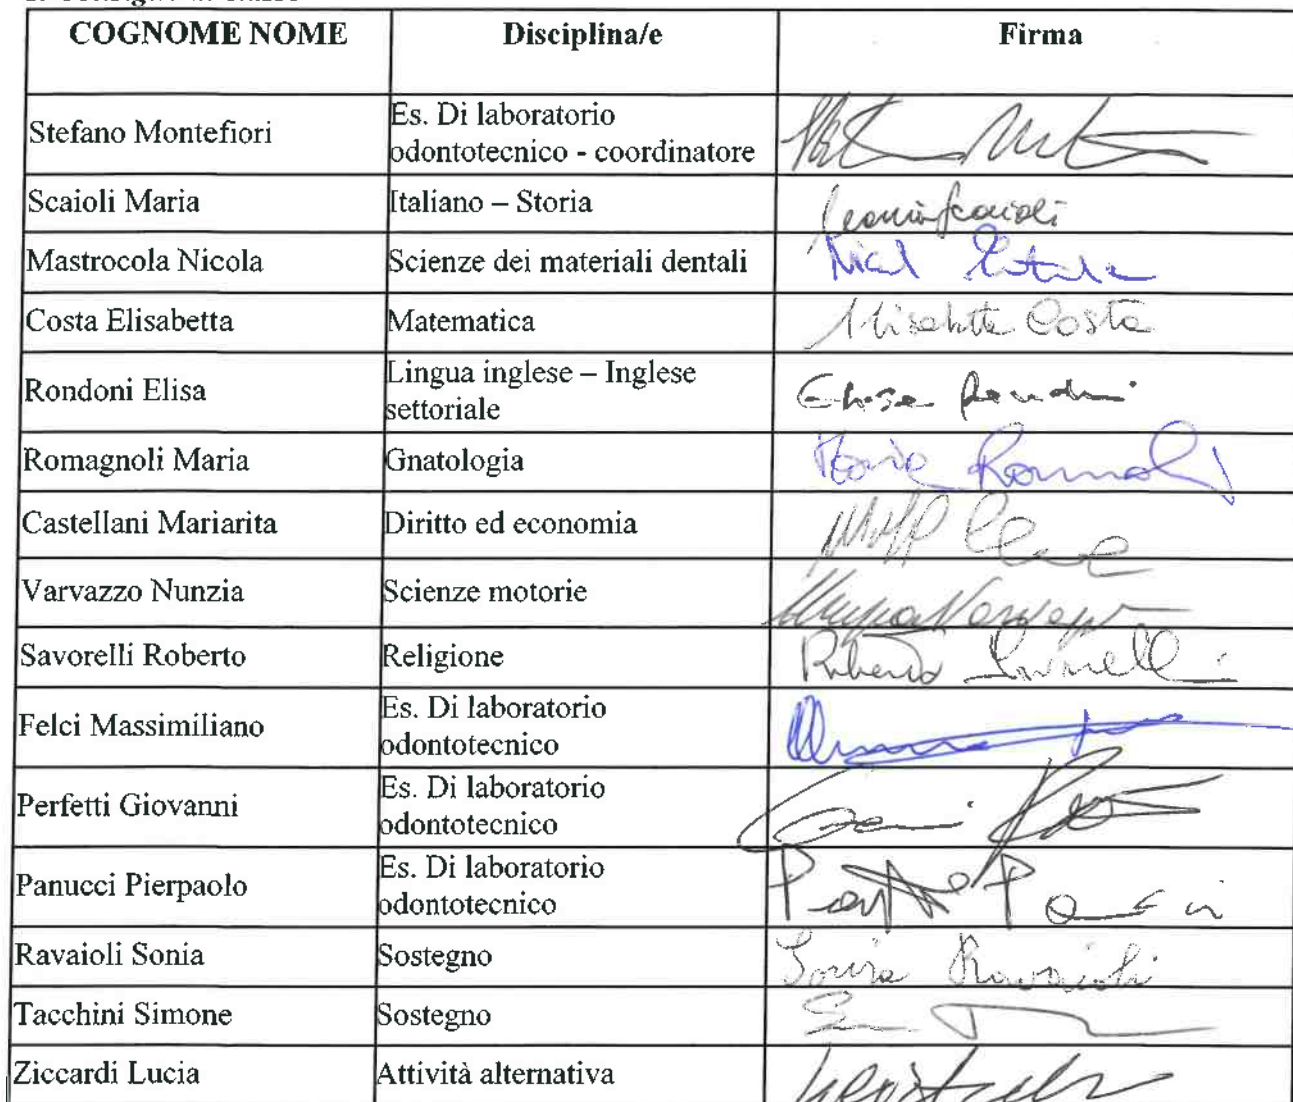 COGNOME NOME Disciplina/e Firma
Stefano Montefiori Es. Di laboratorio
odontotecnico - coordinatore
Scaioli Maria Italiano – Storia
Mastrocola Nicola Scienze dei materiali dentali
Costa Elisabetta Matematica Elisabetta Costa
Rondoni Elisa Lingua inglese – Inglese
settoriale
Romagnoli Maria Gnatologia
Castellani Mariarita Diritto ed economia
Varvazzo Nunzia Scienze motorie
Savorelli Roberto Religione Roberto Savorelli
Felci Massimiliano Es. Di laboratorio
odontotecnico
Perfetti Giovanni Es. Di laboratorio
odontotecnico
Panucci Pierpaolo Es. Di laboratorio
odontotecnico
Ravaioli Sonia Sostegno Sonia Ravaioli
Tacchini Simone Sostegno
Ziccardi Lucia Attività alternativa